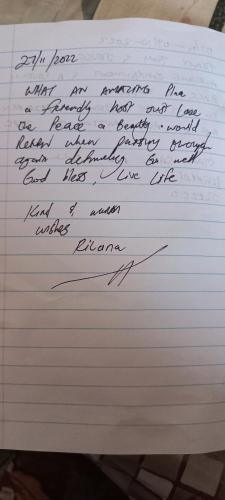 27/11/2022
WHAT AN AMAZING Place
a friendly host just Love
the Peace & Beauty. would
Return when passing through
again definately Go well
God bless, Live Life
Kind & warm
wishes
Rilana